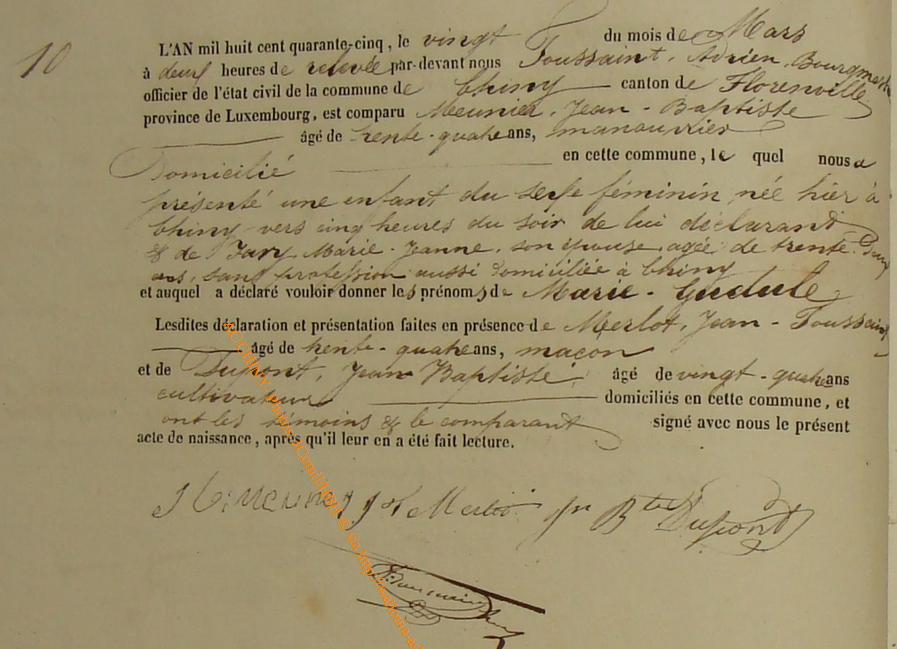 10
L'AN mil huit cent quarante-cinq, le vingt du mois de Mars
à deux heures de relevée par-devant nous Toussaint, Adrien, Bourgmestre
officier de l'état civil de la commune de Chiny canton de Florenville
province de Luxembourg, est comparu Meunier, Jean-Baptiste
âgé de trente-quatre ans, manouvrier
Domicilié en cette commune, le quel nous a
présenté une enfant du sexe féminin née hier à
Chiny vers cinq heures du soir de lui déclarant
& de Marie-Jeanne, son épouse, agée de trente-deux
ans, sans profession aussi domiciliée à Chiny
et auquel a déclaré vouloir donner les prénoms de Marie-Gudule
Lesdites déclaration et présentation faites en présence de Merlot, Jean-Toussaint
âgé de trente-quatre ans, maçon
et de Dupont, Jean Baptiste âgé de vingt-quatre ans
cultivateur domiciliés en cette commune, et
ont les témoins & le comparant signé avec nous le présent
acte de naissance, après qu'il leur en a été fait lecture.
Meunier Merlot Jn Bte Dupont